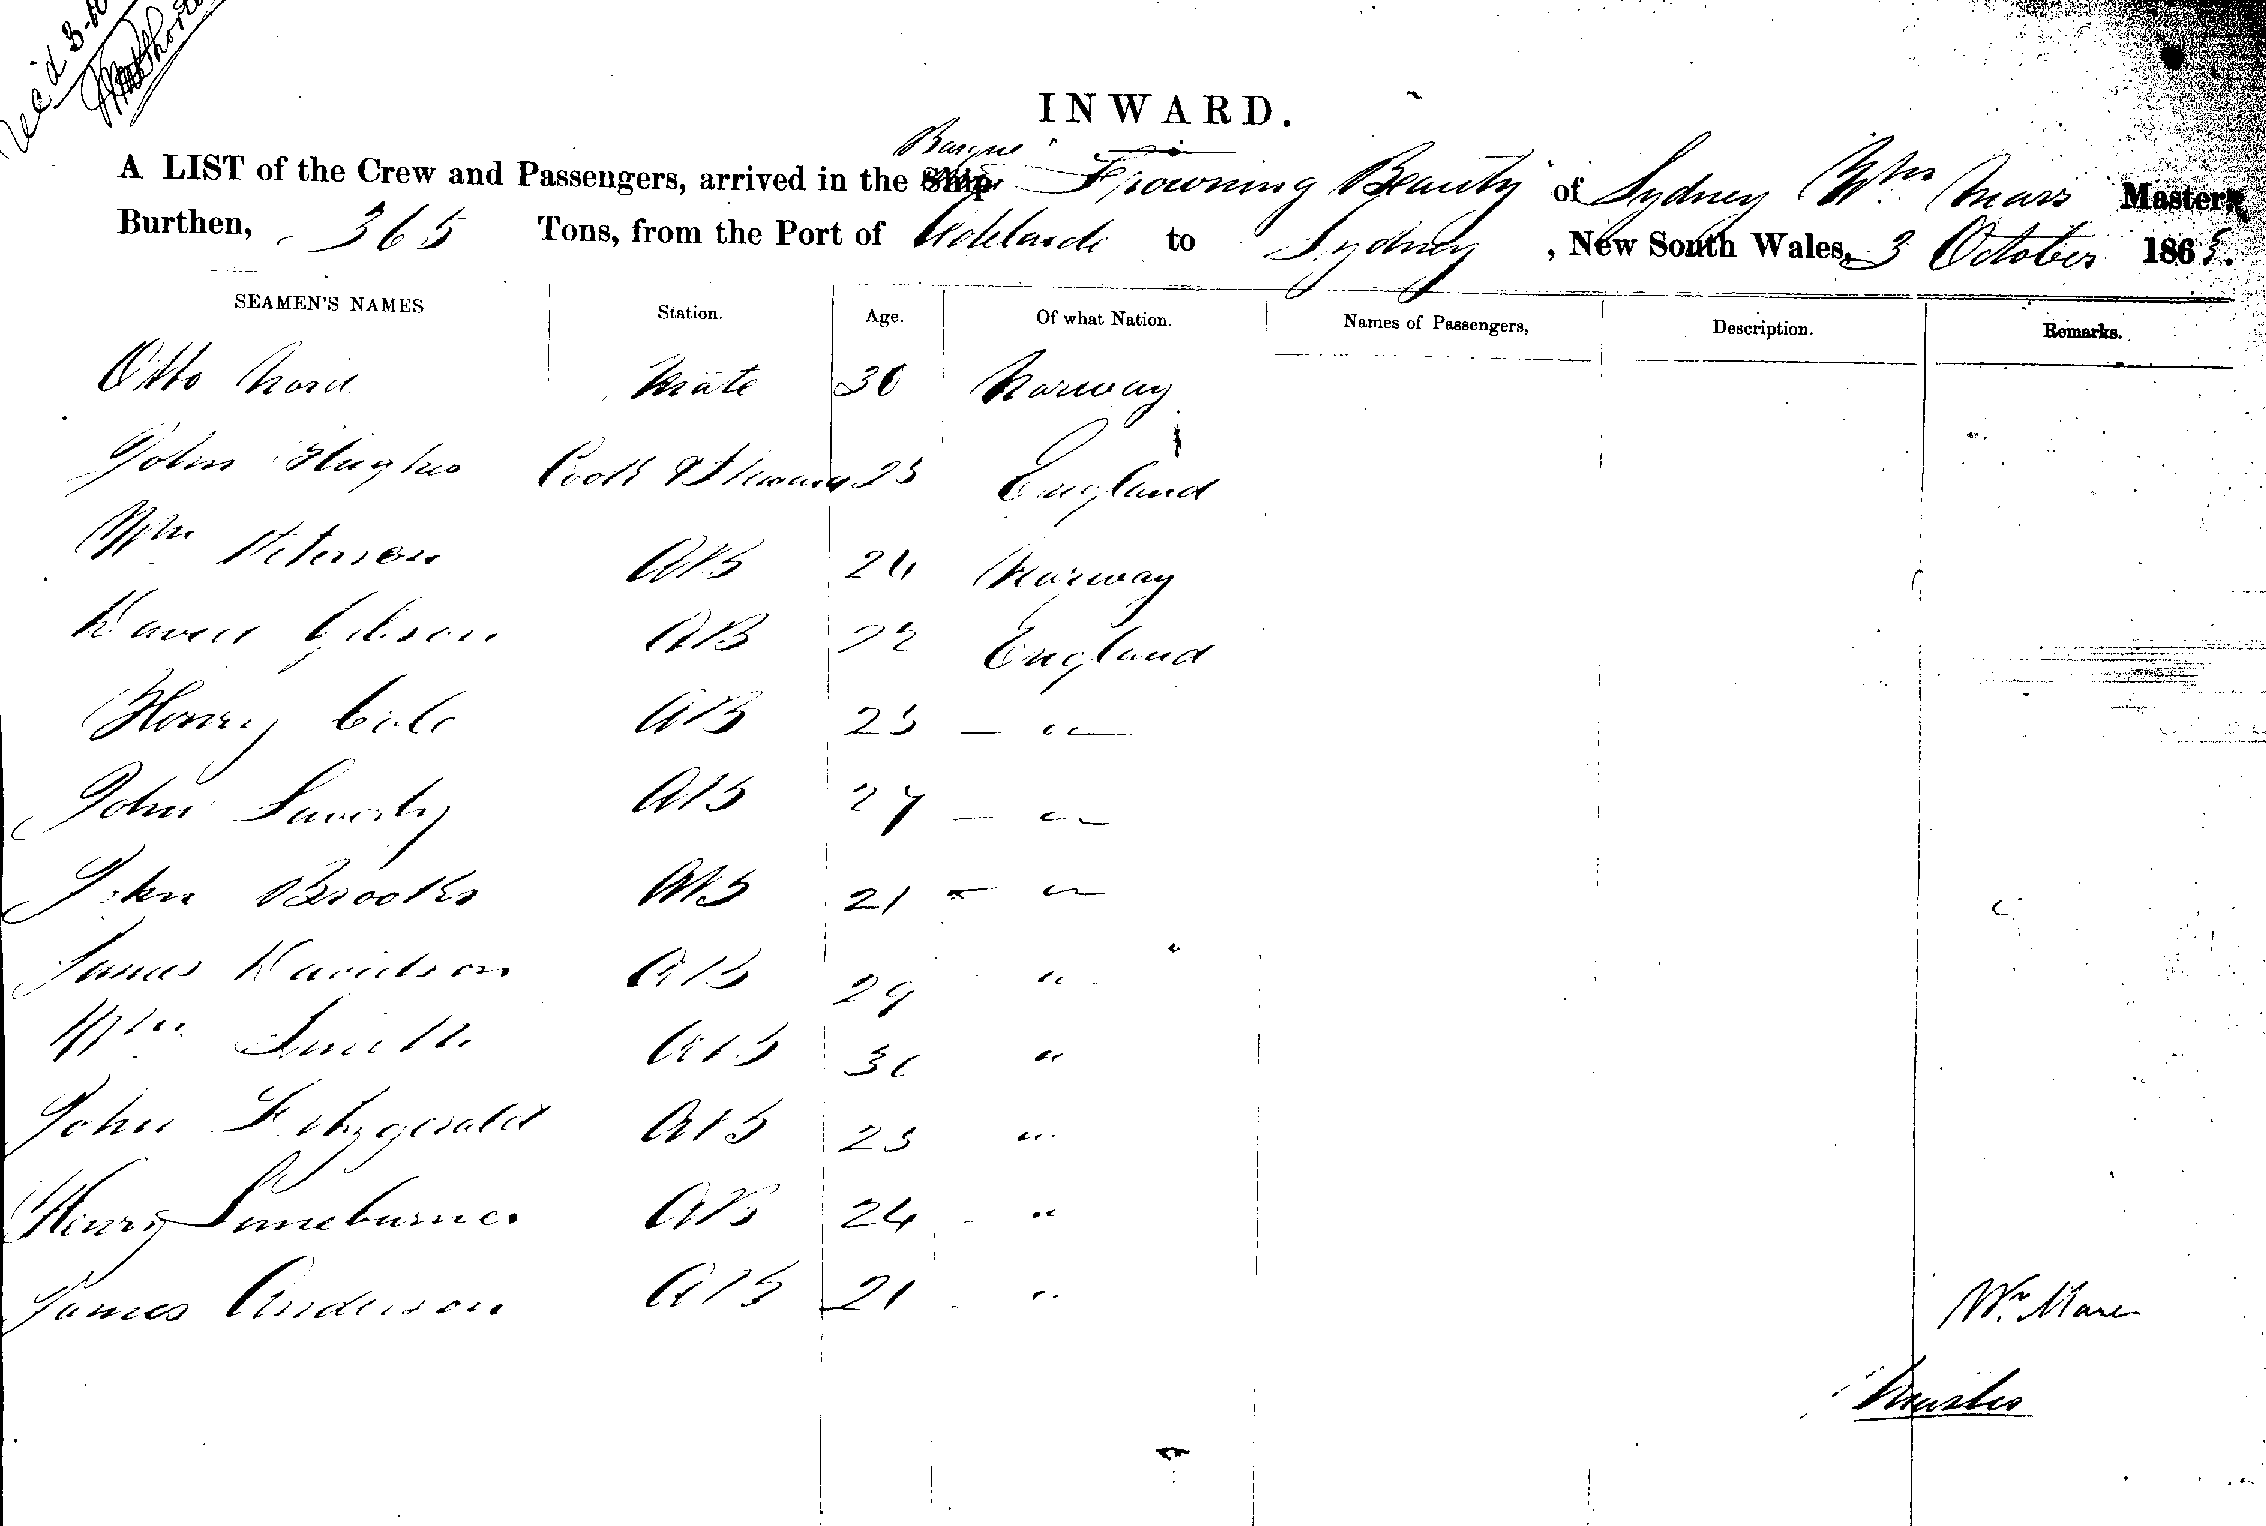 Rec'd 3
INWARD.
Barque
A LIST of the Crew and Passengers, arrived in the Ship Frowning Beauty of Sydney Wm Mars Master,
Burthen, 365 Tons, from the Port of Adelaide to Sydney, New South Wales, 3 October 1865.
SEAMEN'S NAMES Station. Age. Of what Nation. Names of Passengers, Description. Remarks.
Otto Nord Mate 30 Norway
John Hughes Cook & Steward 25 England
Wm Peterson AB 24 Norway
David Gibson AB 22 England
Henry Cole AB 25 — " —
John AB 27 — " —
John Brooks AB 21 — " —
James Davidson AB 29 "
Wm Smith AB 30 "
John Fitzgerald AB 25 "
Henry Limeburner AB 24 "
James Anderson AB 21 "
Wm Mars
Master